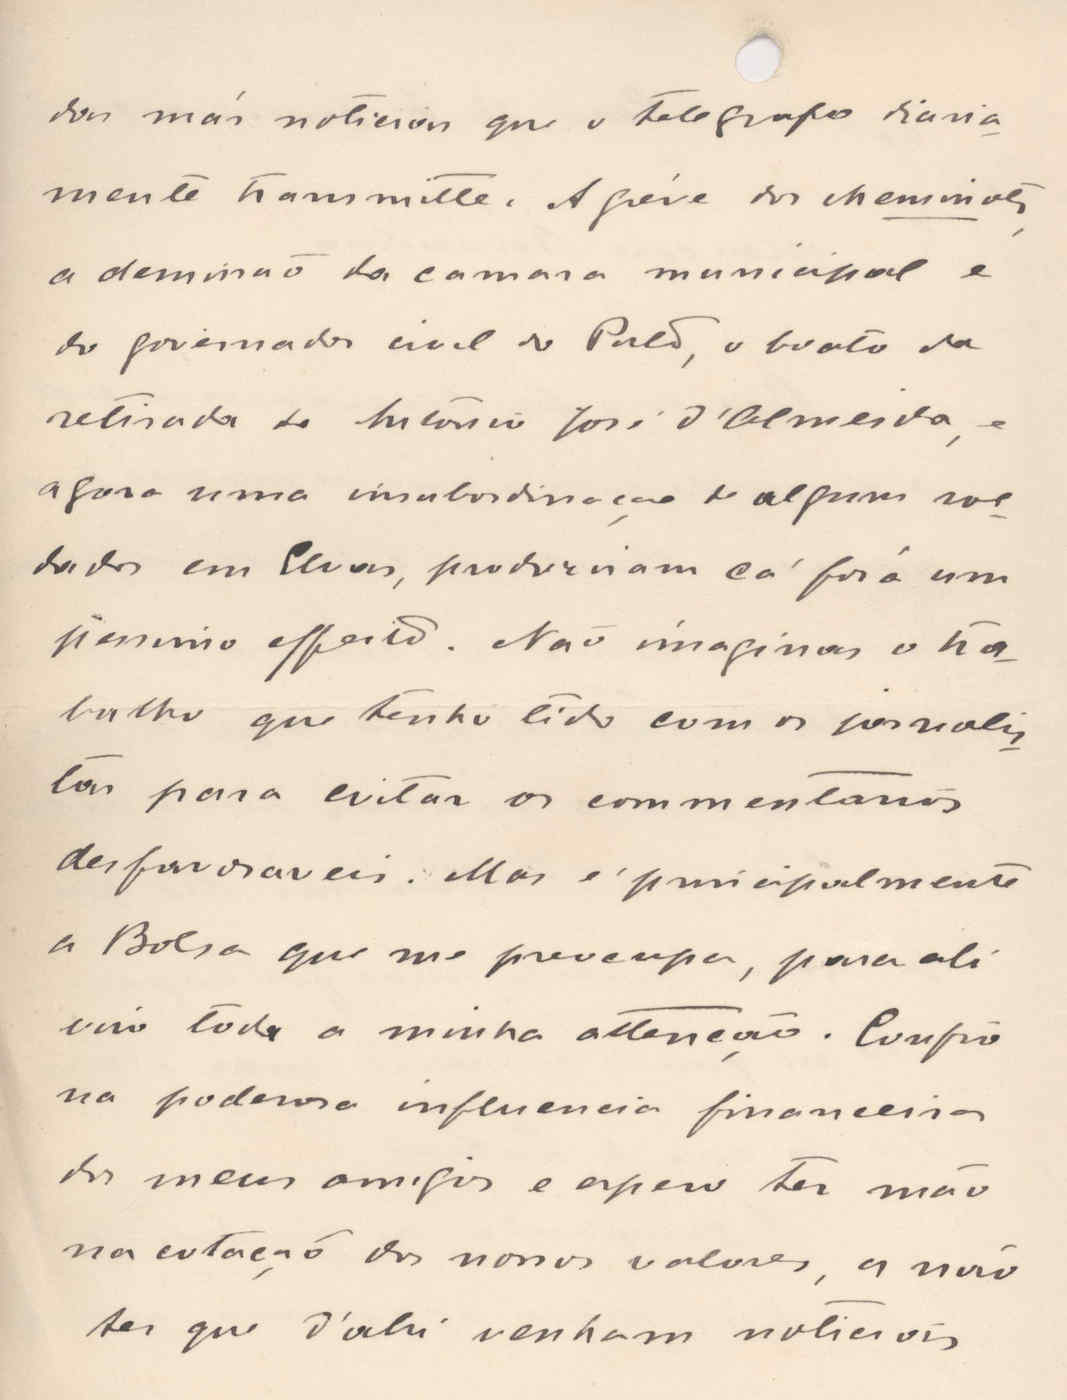 das más noticias que o telegrapho diaria-
mente transmitte. A gréve dos cheminots,
a demissão da camara municipal e
do governador civil do Porto, o boato da
retirada de António José d'Almeida, e
agora uma insubordinação de alguns sol-
dados em Elvas, produziram cá fóra um
pessimo effeito. Não imaginas o tra-
balho que tenho tido com os jornalis-
tas para evitar os commentarios
desfavoraveis. Mas é principalmente
a Bolsa que me preocupa, para ali
viro toda a minha attenção. Confio
na poderosa influencia financeira
dos meus amigos e espero ter mão
na cotação dos nossos valores, a não
ser que d'ahi venham noticias